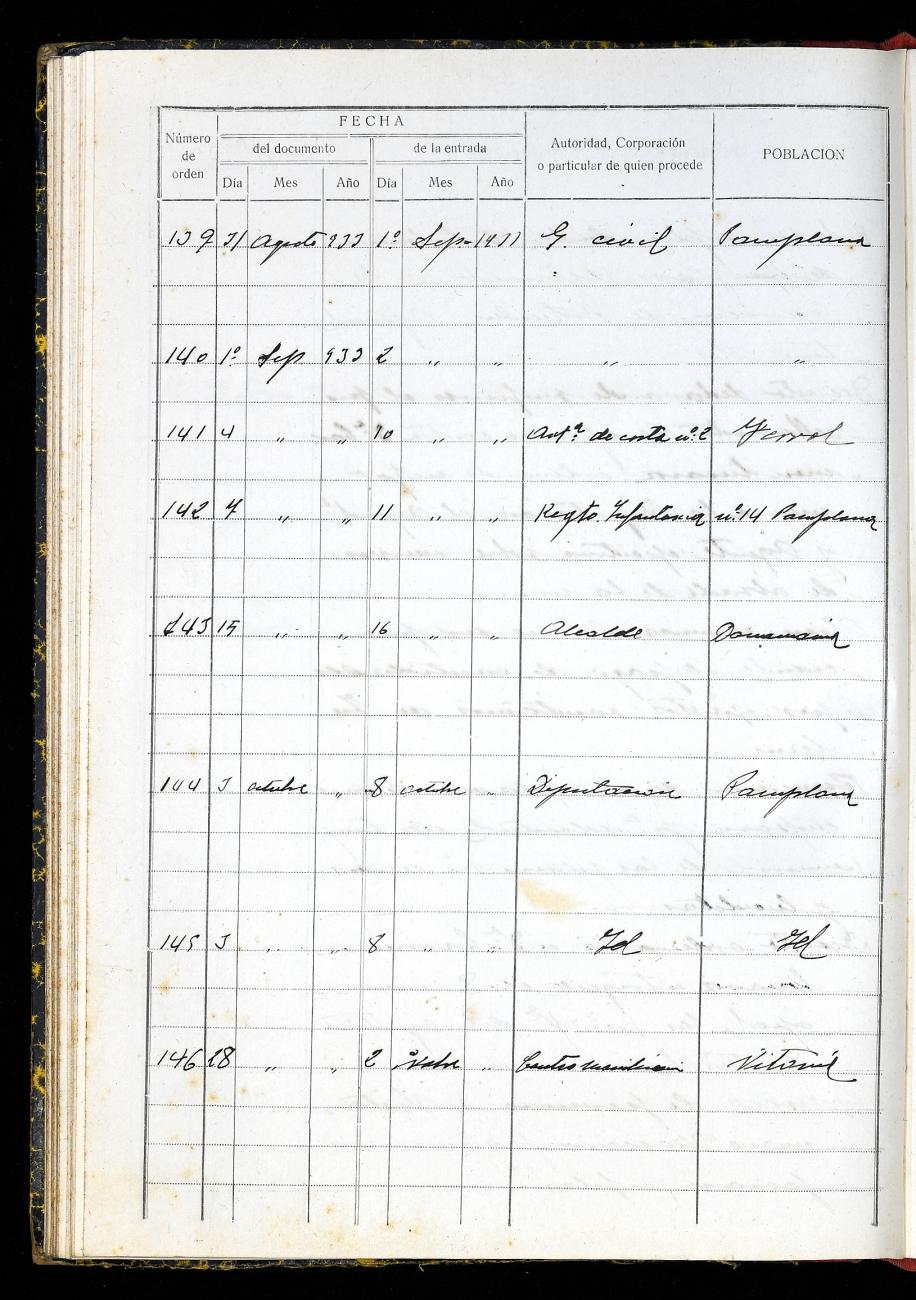 Número de orden FECHA Autoridad, Corporación o particular de quien procede POBLACION
del documento de la entrada
Día Mes Año Día Mes Año
139 31 Agosto 933 1º Sep- 1933 G. civil Pamplona
140 1º Sep 933 2 " " " "
141 4 " " 10 " " Artª de costa nº 2 Ferrol
142 7 " " 11 " " Regto. Infanteria nº 14 Pamplona
143 15 " " 16 " " Alcalde Donamaria
144 3 octubre " 8 octubre " Diputacion Pamplona
145 3 " " 8 " " Id Id
146 28 " " 2 Nobre " Centro Vitoria